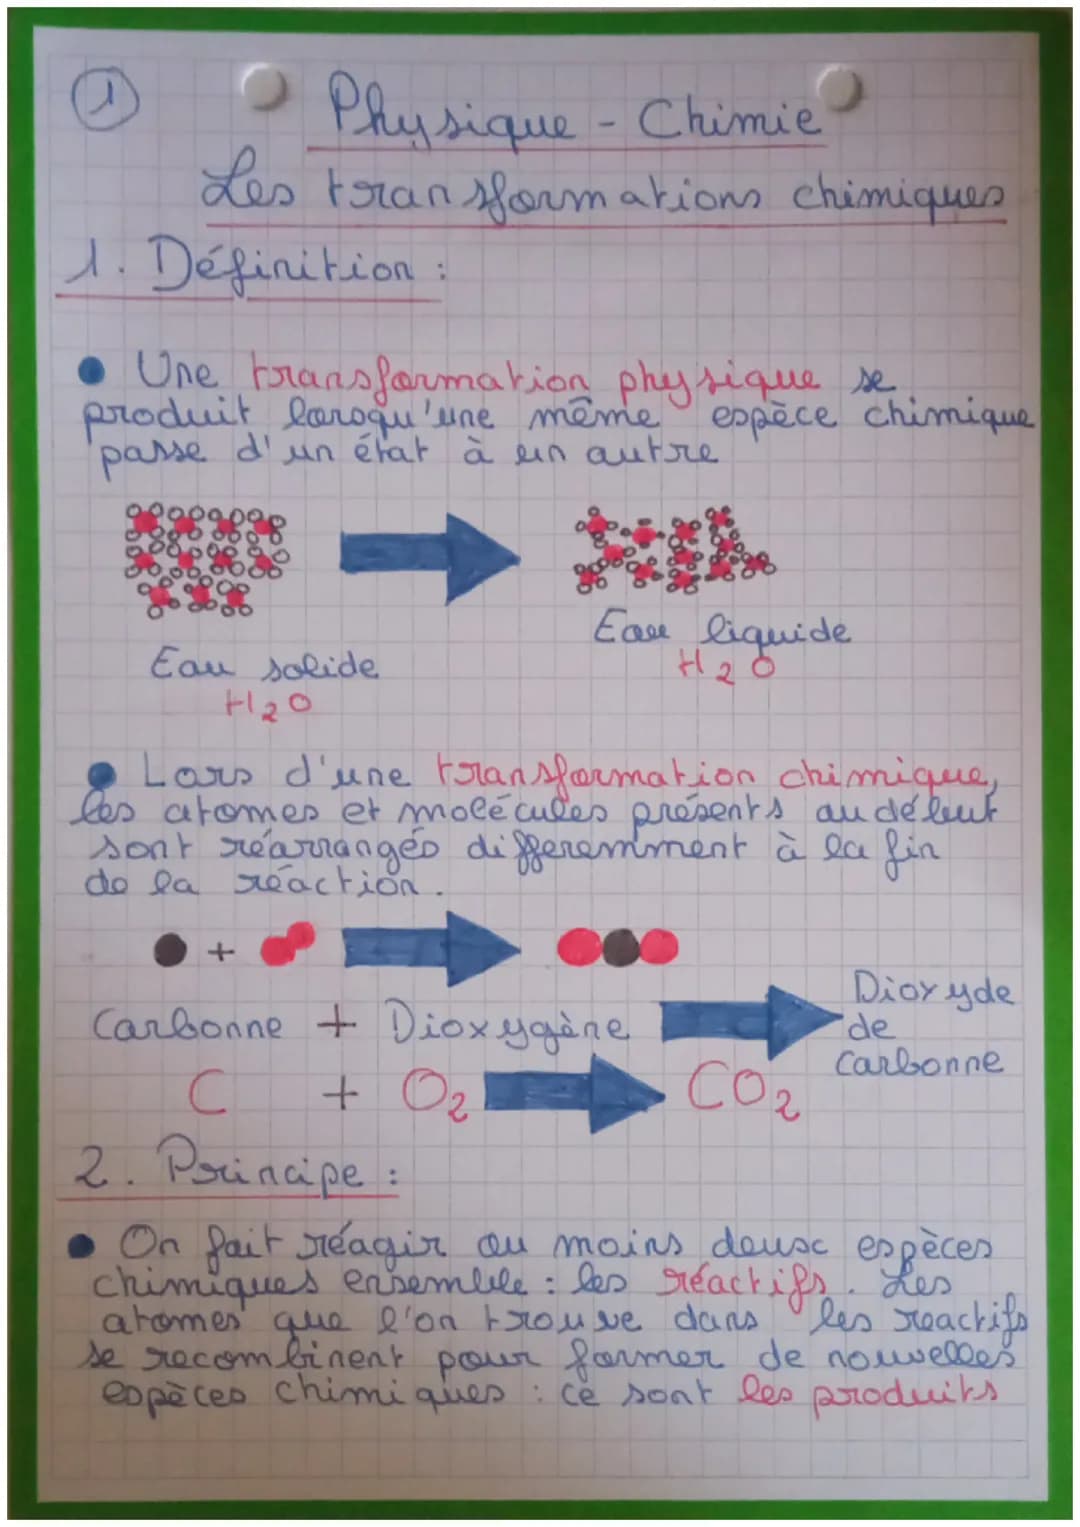 1
Physique - Chimie
Les transformations chimiques
1. Définition :
• Une transformation physique se
produit lorsqu'une même espèce chimique
passe d'un état à un autre
Eau solide
H₂O
Eau liquide
H₂O
• Lors d'une transformation chimique,
les atomes et molécules présents au début
sont réarrangés differemment à la fin
de la réaction.
+
Carbonne + Dioxygène
Dioxyde
de
carbonne
C + O₂ CO₂
2. Principe :
• On fait réagir au moins deux espèces
chimiques ensemble : les réactifs. Les
atomes que l'on trouve dans les reactifs
se recombinent pour former de nouvelles
espèces chimiques : ce sont les produits